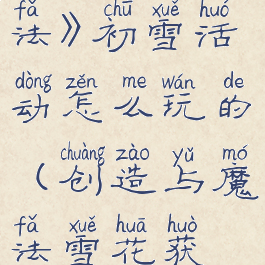 fǎ chū xuě huó
法》初雪活
dòng zěn me wán de
动怎么玩的
chuàng zào yǔ mó
（创造与魔
fǎ xuě huā huò
法雪花获